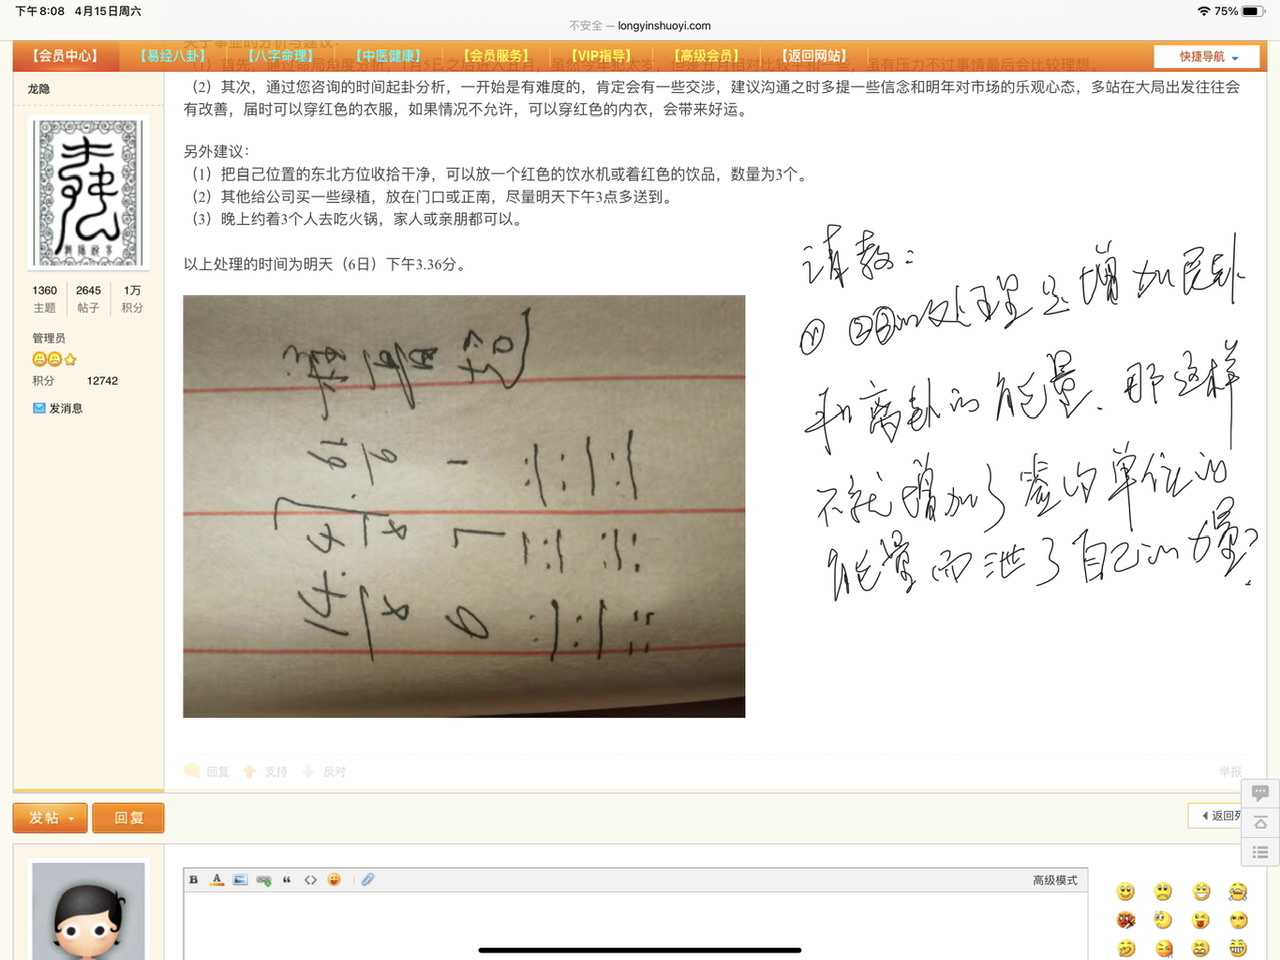 下午8:08 4月15日周六
75%
不安全 — longyinshuoyi.com
【会员中心】 【易经八卦】 【八字命理】 【中医健康】 【会员服务】 【VIP指导】 【高级会员】 【返回网站】 快捷导航
龙隐
1360 2645 1万
主题 帖子 积分
管理员
积分 12742
发消息
(2)其次，通过您咨询的时间起卦分析，一开始是有难度的，肯定会有一些交涉，建议沟通之时多提一些信念和明年对市场的乐观心态，多站在大局出发往往会
有改善，届时可以穿红色的衣服，如果情况不允许，可以穿红色的内衣，会带来好运。
另外建议：
（1）把自己位置的东北方位收拾干净，可以放一个红色的饮水机或着红色的饮品，数量为3个。
（2）其他给公司买一些绿植，放在门口或正南，尽量明天下午3点多送到。
（3）晚上约着3个人去吃火锅，家人或亲朋都可以。
以上处理的时间为明天（6日）下午3.36分。
请教：
① ②③的处理是增加艮卦
和离卦的能量、那这样
不就增加了 的单位的
能量而泄了自己的力量？
回复 支持 反对 举报
发帖 回复 返回列
B A 高级模式